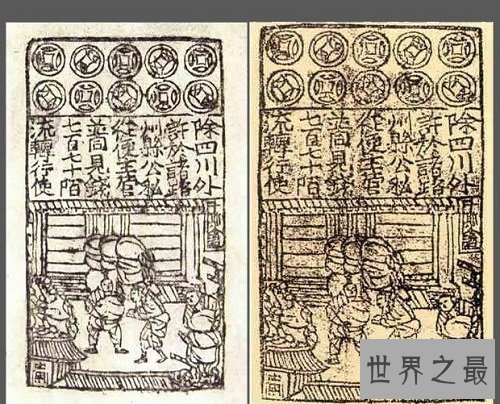 除四川外
許於諸路
州縣公私
從便主管
並同見錢
七百七十陌
流轉行使
除四川外
許於諸路
州縣公私
從便主管
並同見錢
七百七十陌
流轉行使
世界之最